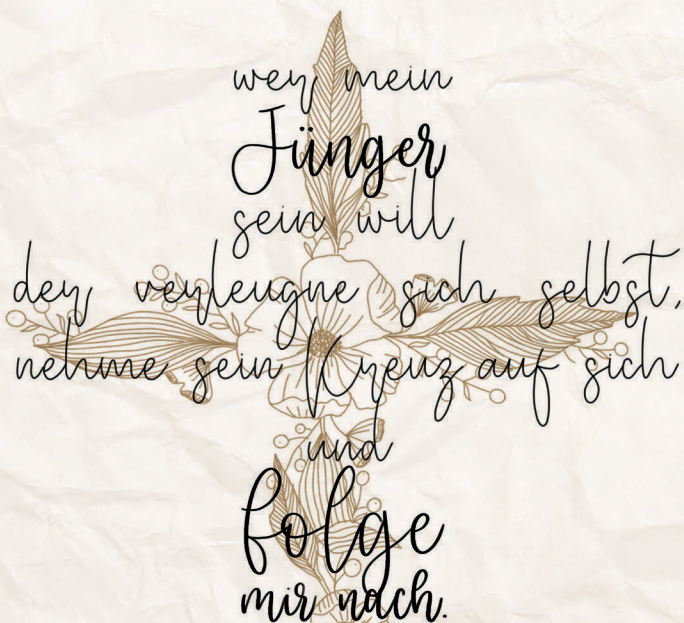 wer mein
Jünger
sein will
der verleugne sich selbst,
nehme sein Kreuz auf sich
und
folge
mir nach.